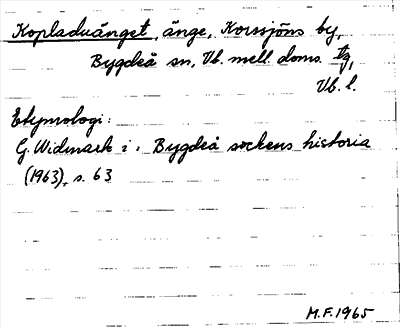 Kopladuänget, änge, Korssjöns by,
Bygdeå sn, Vb. mell. doms. tg,
Vb. l.
Etymologi:
G. Widmark i: Bygdeå sockens historia
(1963), s. 63
M.F. 1965